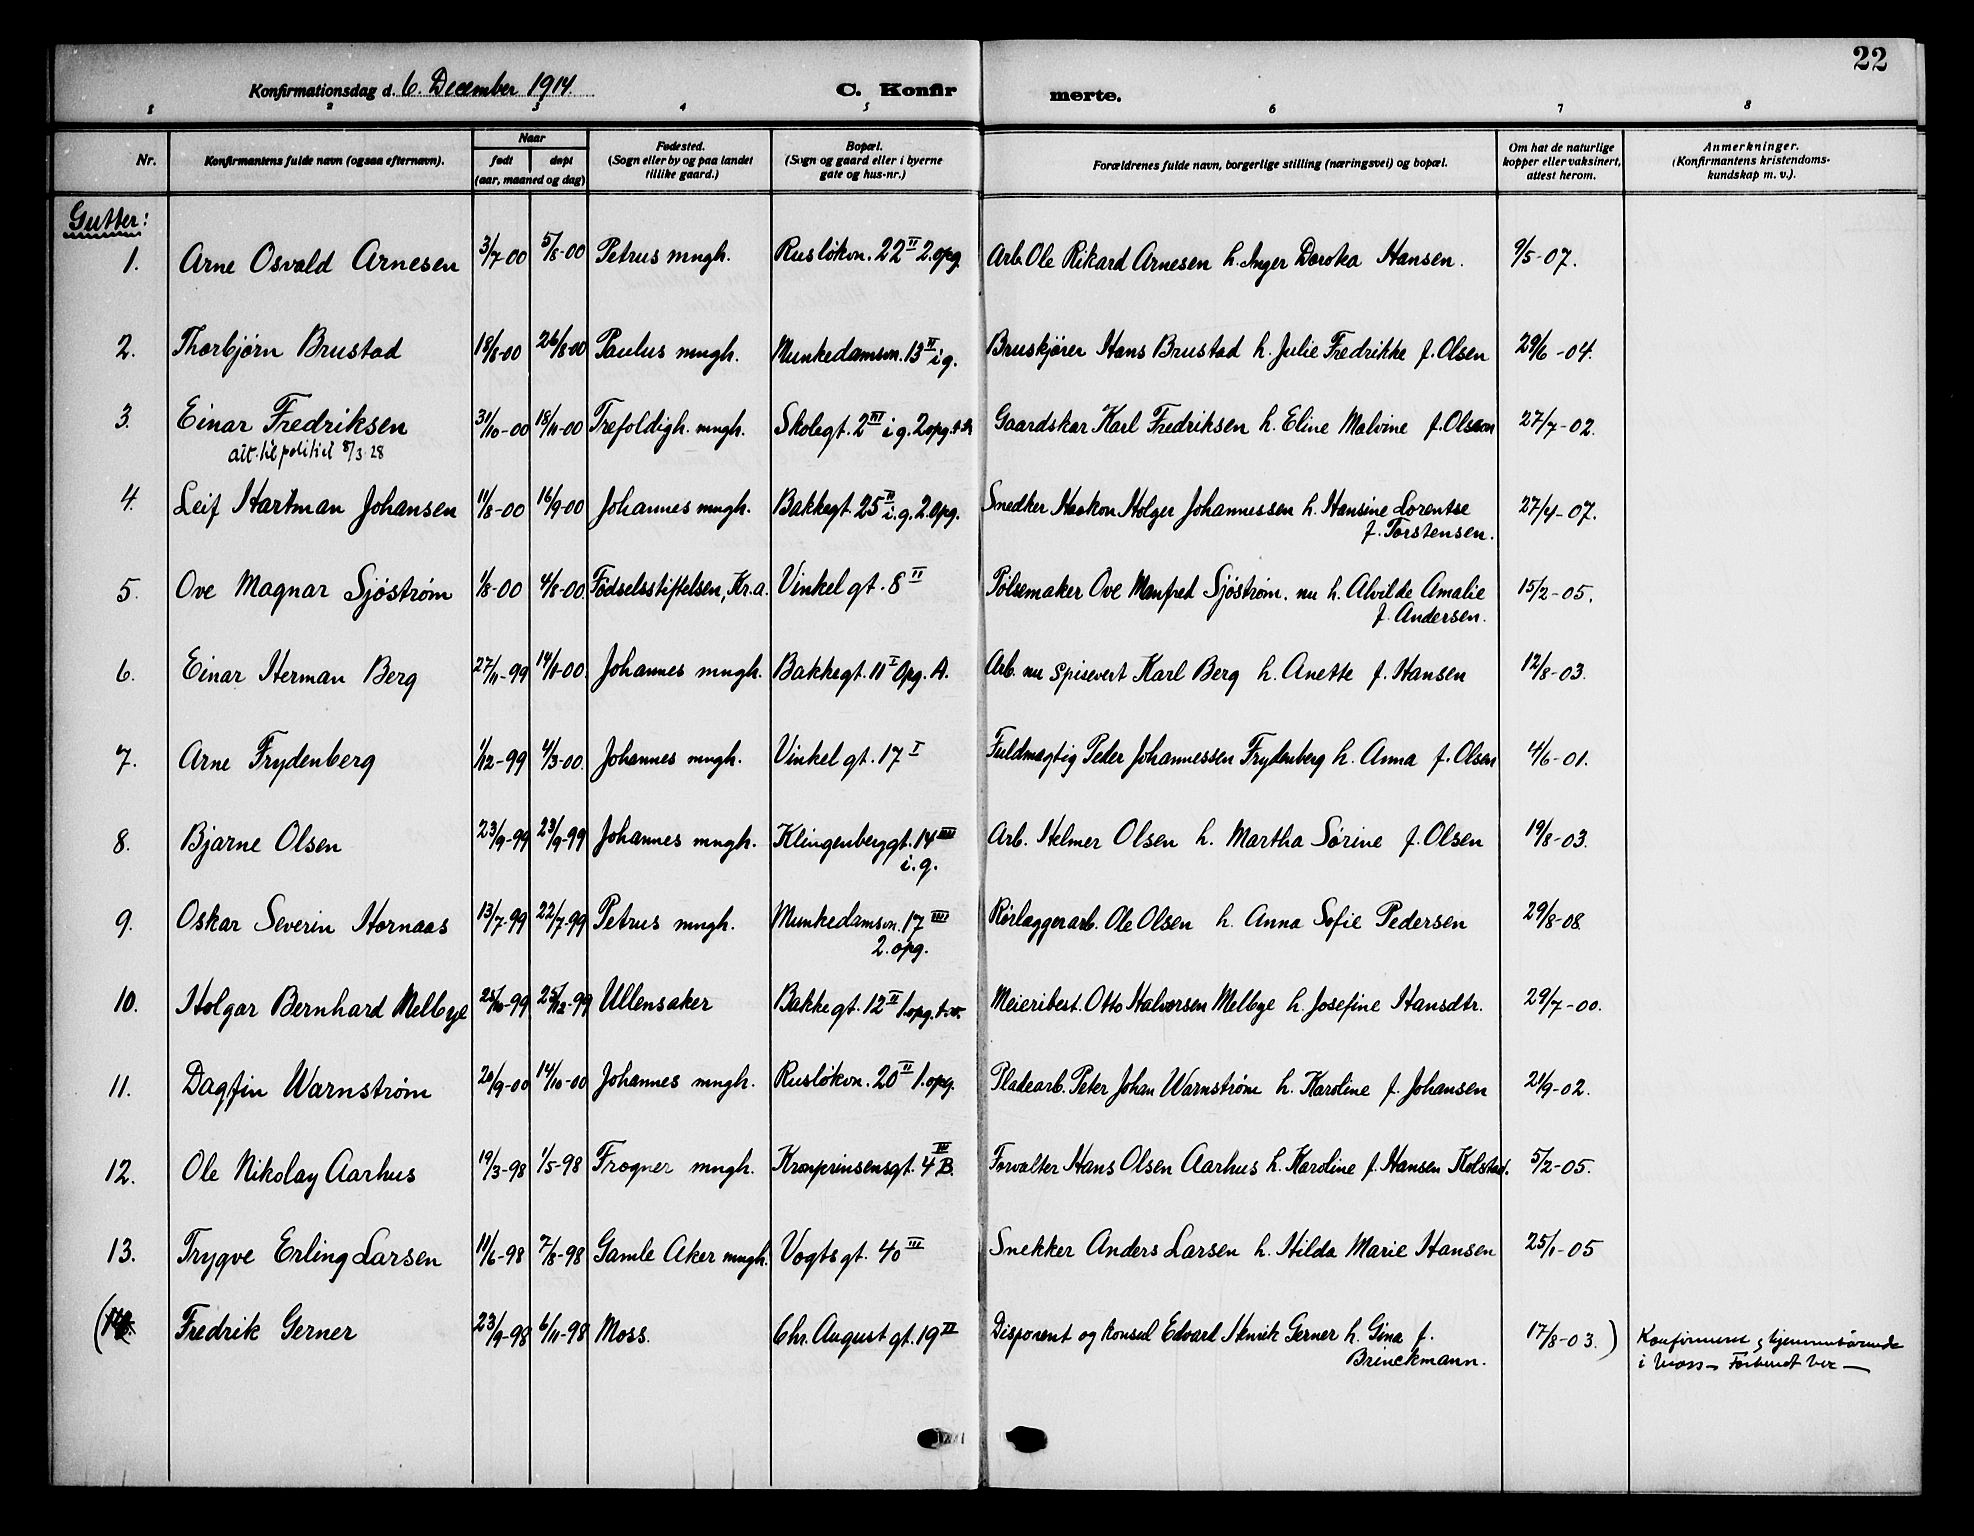 22
Konfirmationsdag d. 6. December 1914. C. Konfirmerte.
1 2 3 4 5 6 7 8
Nr. Konfirmantens fulde navn (ogsaa efternavn). Naar født døpt (aar, maaned og dag) Fødested. (Sogn eller by og paa landet tillike gaard.) Bopæl. (Sogn og gaard eller i byerne gate og hus-nr.) Forældrenes fulde navn, borgerlige stilling (næringsvei) og bopæl. Om hat de naturlige kopper eller vaksinert, attest herom. Anmerkninger. (Konfirmantens kristendomskundskap m. v.).
Gutter:
1. Arne Osvald Arnesen 3/7-00 5/8-00 Petrus mngh. Rusløkvn. 22 II 2. opg. Arb. Ole Rikard Arnesen h. Inger Dorotea Hansen. 9/5-07.
2. Thorbjørn Brustad 18/8-00 26/8-00 Paulus mngh. Munkedamsvn. 13 IV i g. Bruskjører Hans Brustad h. Julie Fredrikke f. Olsen 29/6-04.
3. Einar Fredriksen 31/10-00 18/11-00 Trefoldigh. mngh. Skolegt. 2 III i g. 2 opg. Gaardskar Karl Fredriksen h. Eline Malvine f. Olsen 27/7-02.
att. til politiet 8/3.28
4. Leif Hartman Johansen 11/8-00 16/9-00 Johannes mngh. Bakkegt. 25 IV i. g. 2. opg. Snedker Haakon Holger Johannessen h. Hansine Lorentse 27/4-07.
f. Torstensen.
5. Ove Magnar Sjöstrøm 1/8-00 4/8-00 Fødselsstiftelsen, Kr.a. Vinkelgt. 8 II Pølsemaker Ove Manfred Sjöstrøm. nu h. Alvilde Amalie 15/2-05.
f. Andersen.
6. Einar Herman Berg 27/11-99 14/1-00 Johannes mngh. Bakkegt. 11 I Opg. A. Arb. nu spisevert Karl Berg h. Anette f. Hansen 12/8-03.
7. Arne Frydenberg 1/12-99 4/3-00 Johannes mngh. Vinkelgt. 17 I Fuldmægtig Peder Johannessen Frydenberg h. Anna f. Olsen 4/6-01.
8. Bjarne Olsen 23/9-99 23/9-99 Johannes mngh. Klingenberggt. 14 IIII Arb. Helmer Olsen h. Martha Sørine f. Olsen 19/8-03.
i. g.
9. Oskar Severin Hornaas 13/7-99 22/7-99 Petrus mngh. Munkedamsvn. 17 IIII Rørlæggerarb. Ole Olsen h. Anna Sofie Pedersen 29/8-08.
2. opg.
10. Holgar Bernhard Melbye 25/10-99 25/12-99 Ullensaker Bakkegt. 12 II 1. opg. t.v. Meieribest. Otto Halvorsen Melbye h. Josefine Hansdtr. 29/7-00.
11. Dagfin Warnstrøm 20/9-00 14/10-00 Johannes mngh. Rusløkvn. 20 II 1. opg. Pladearb. Peter Johan Warnstrøm h. Karoline f. Johansen 21/9-02.
12. Ole Nikolay Aarhus 19/3-98 1/5-98 Frogner mngh. Kronprinsensgt. 4 B. III Forvalter Hans Olsen Aarhus h. Karoline f. Hansen Kolstad. 5/2-05.
13. Trygve Erling Larsen 11/6-98 7/8-98 Gamle Aker mngh. Vogtsgt. 40 III Snekker Anders Larsen h. Hilda Marie Hansen 25/1-05
(14. Fredrik Gerner 23/9-98 6/11-98 Moss. Chr. August gt. 19 II Disponent og konsul Edvard Henrik Gerner h. Gina f. 17/8-03.) Konfirmeret i hjemmetsværende
Brinckmann. i Moss – Forberedt her –